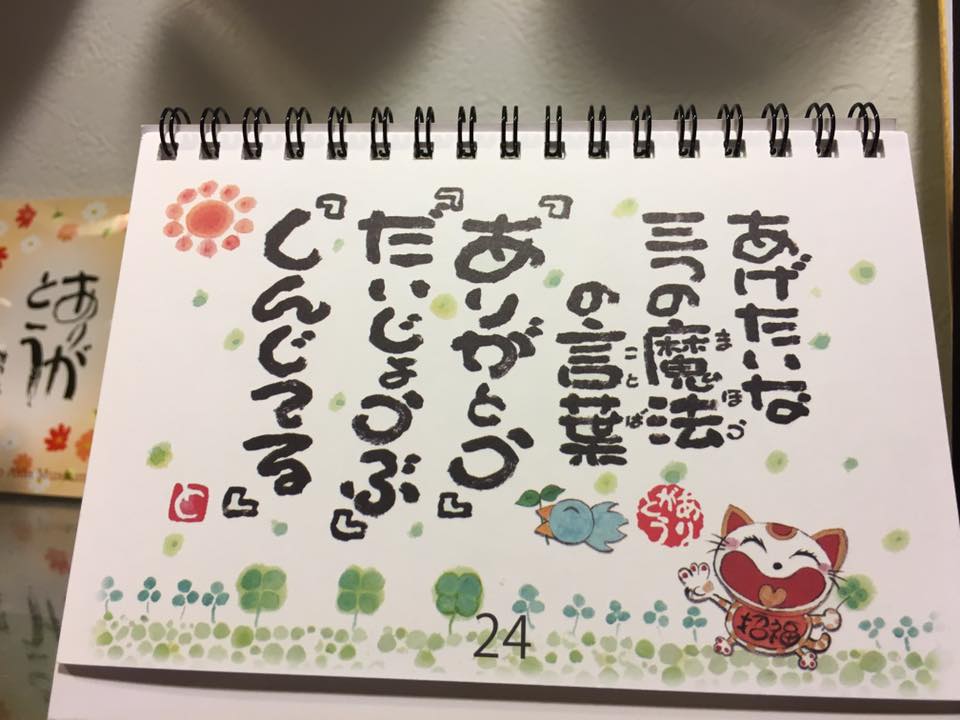 あげたいな
三つの魔法
まほう
の言葉
ことば
『ありがとう』
『だいじょうぶ』
『しんじてる』
と
ありがとう
招福
24
ありがとう